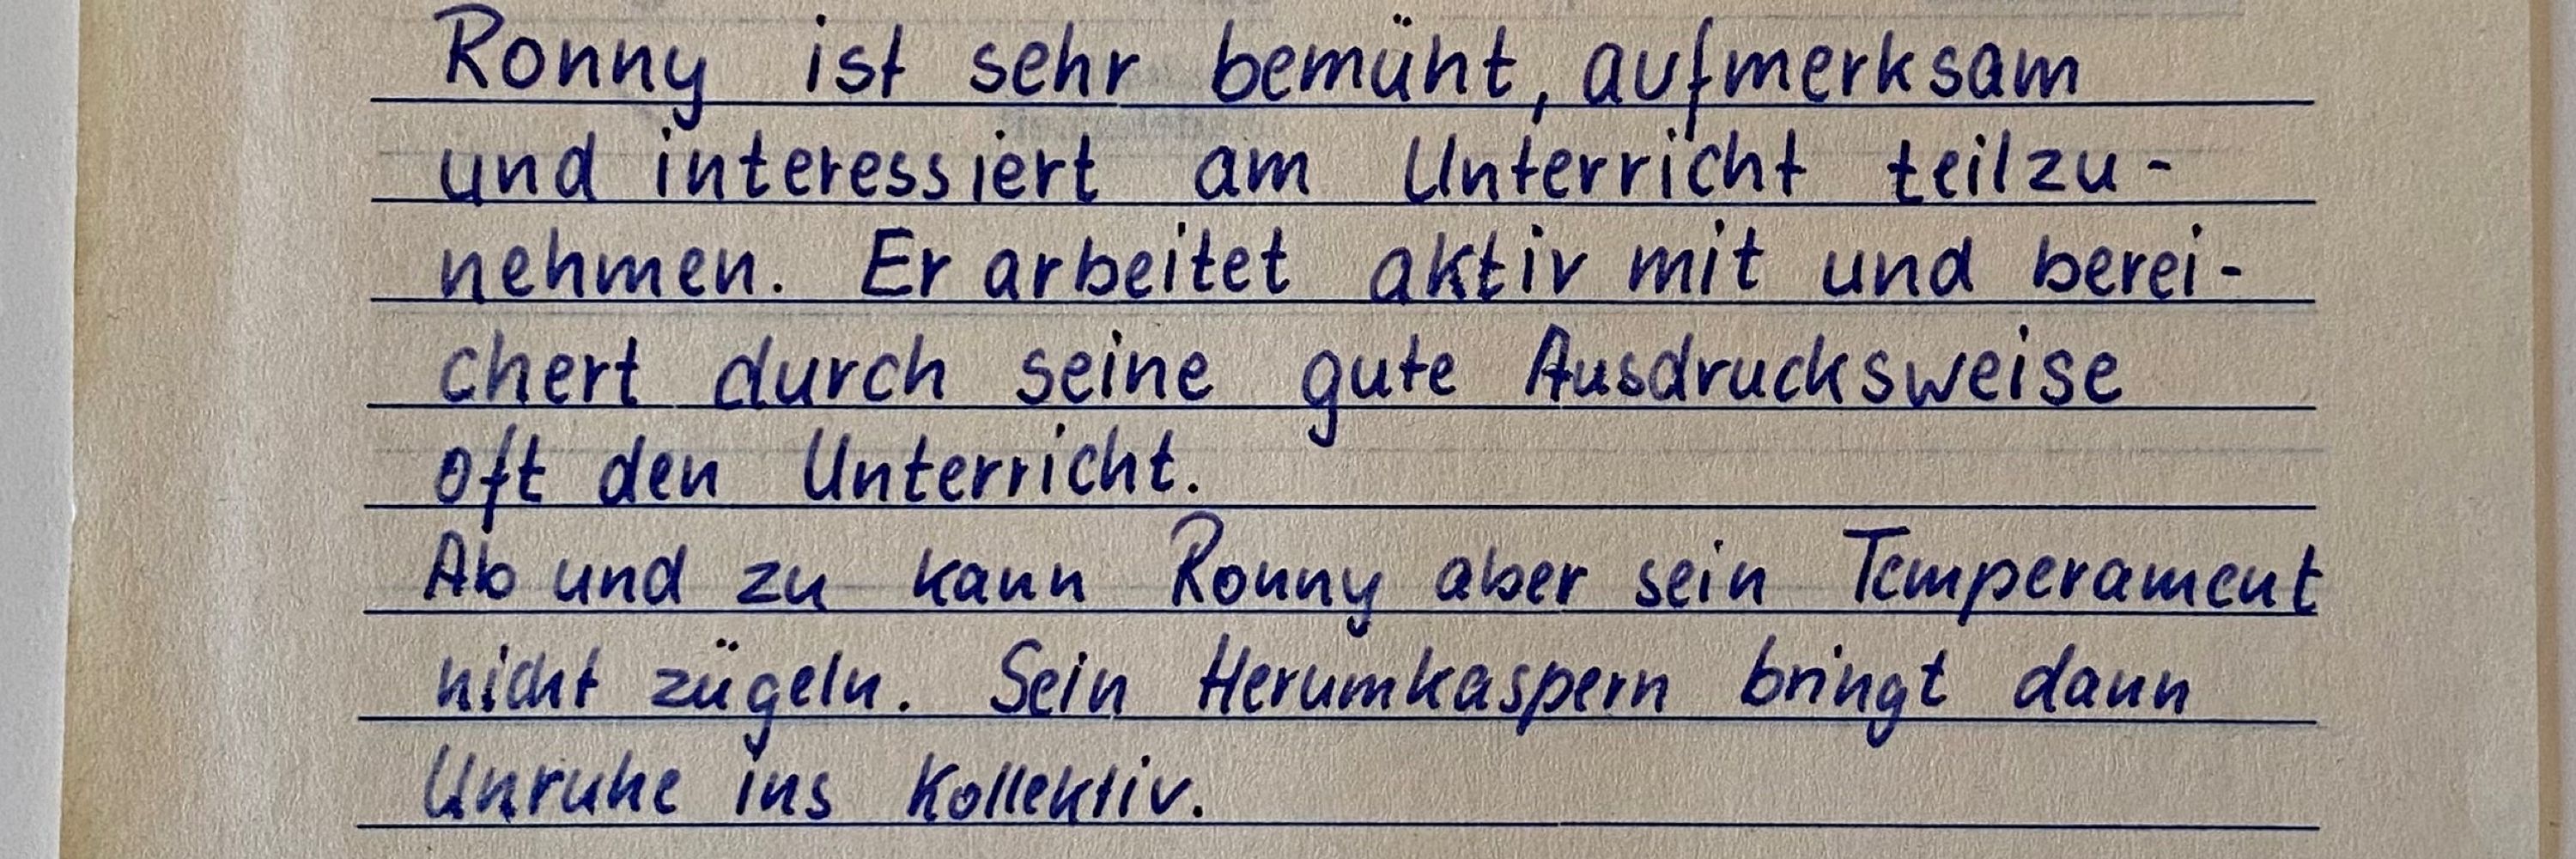 Ronny ist sehr bemüht, aufmerksam
und interessiert am Unterricht teilzu-
nehmen. Er arbeitet aktiv mit und berei-
chert durch seine gute Ausdrucksweise
oft den Unterricht.
Ab und zu kann Ronny aber sein Temperament
nicht zügeln. Sein Herumkaspern bringt dann
Unruhe ins Kollektiv.